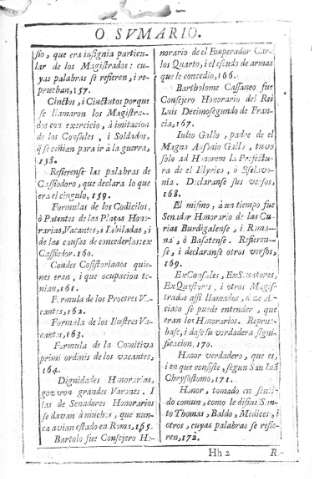 O SVMARIO.
sio, que era insignia particu-
lar de los Magistrados: cu-
yas palabras se refieren, i re-
prueban, 157.
Cinctos, i Cinctutos porque
se llamaron los Magistra-
dos con exercicio, à imitacion
de los Consules, i Soldados,
q̃ se ceñian para ir à la guerra,
158.
Refierense las palabras de
Cassiodoro, que declara lo que
era el cingulo, 159.
Formulas de los Codicilos,
ò Patentes de las Plaças Hono-
rarias, Vacantes, i Iubiladas, i
de las causas de concederlas: ex
Cassiodor. 160.
Condes Cosistorianos quie-
nes eran, i que ocupacion te-
nian, 161.
Formula de los Proceres Va-
cantes, 162.
Formula de los Ilustres Va-
cantes, 163.
Formula de la Comitiva
primi ordinis de los vacantes,
164.
Dignidades Honorarias,
gozaron grandes Varones. I
las de Senadores Honorarios
se davan à muchos, que nun-
ca avian estado en Roma, 165.
Bartolo fue Consejero Ho-
norario de el Emperador Car-
los Quarto, i el escudo de armas
que le concedio, 166.
Bartholome Cassaneo fue
Consejero Honorario del Rei
Luis Decimosegundo de Fran-
cia, 167.
Iulio Galio, padre de el
Magno Ausonio Galio, tuvo
solo ad Honorem la Prefectu-
ra de el Illyrico, ò Esclavo-
nia. Declaranse sus versos,
168.
El mismo, à un tiempo fue
Senador Honorario de las Cu-
rias Burdigalense, i Roma-
na, ò Basatense. Refieren-
se, i declaranse otros versos,
169.
ExConsules, ExSenatores,
ExQuæstores, i otros Magis-
trados assi llamados,
ciato se puede entender, que
eran los Honorarios. Reprue-
base, i dase su verdadera signi-
ficacion, 170.
Honor verdadero, que es,
i en que consiste, segun San Iuã
Chrysostomo, 171.
Honor, tomado en senti-
do comun, como le difine San-
to Thomas, Baldo, Medices, i
otros, cuyas palabras se refie-
ren, 172.
Hh 2 R-